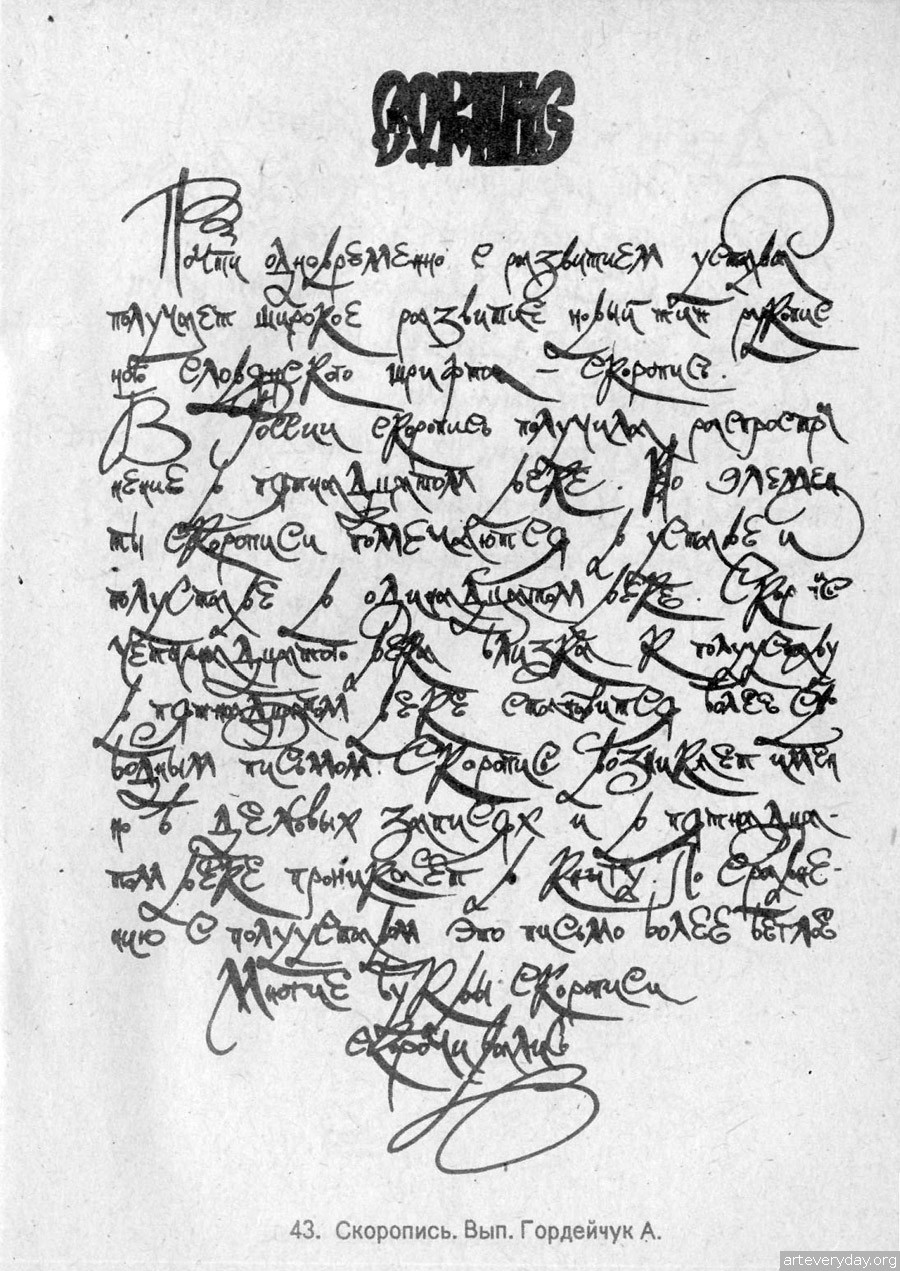 СКОРОПИСЬ
Почти одновременно с развитием устава
получает широкое развитие новый тип рукопис
ного словянского шрифта – скоропис.
В России скоропись получила распростра
нение в пятнадцатом веке. Но элемен
ты скорописи помечаются в уставе и
полуставе в одинадцатом веке. Скоропис
четырнадцатого века близка к полууставу
в пятнадцатом веке становится более сво
бодным письмом. Скоропись возникает имен
но в деловых записях и в пятнадца-
том веке проникает в книгу. По сравне-
нию с полууставом это письмо более беглое
Многие буквы скорописи
укорачивались
43. Скоропись. Вып. Гордейчук А.
arteveryday.org